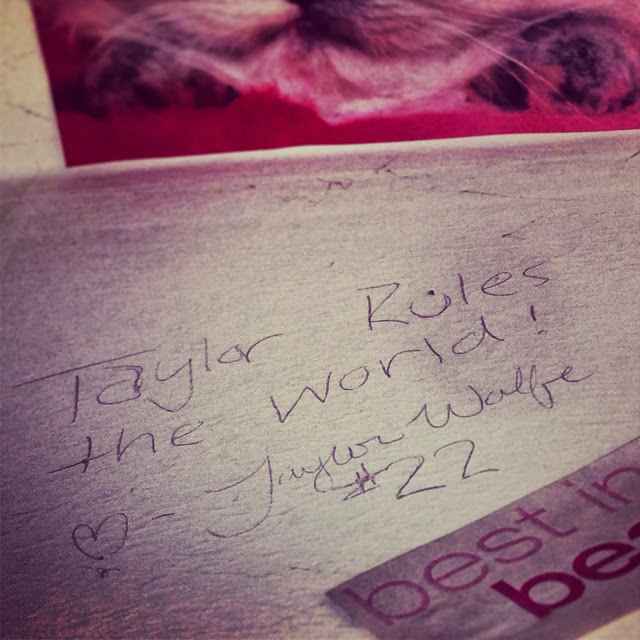 Taylor Rules
the World!
♡ - Taylor Wolfe
#22
best in
bea